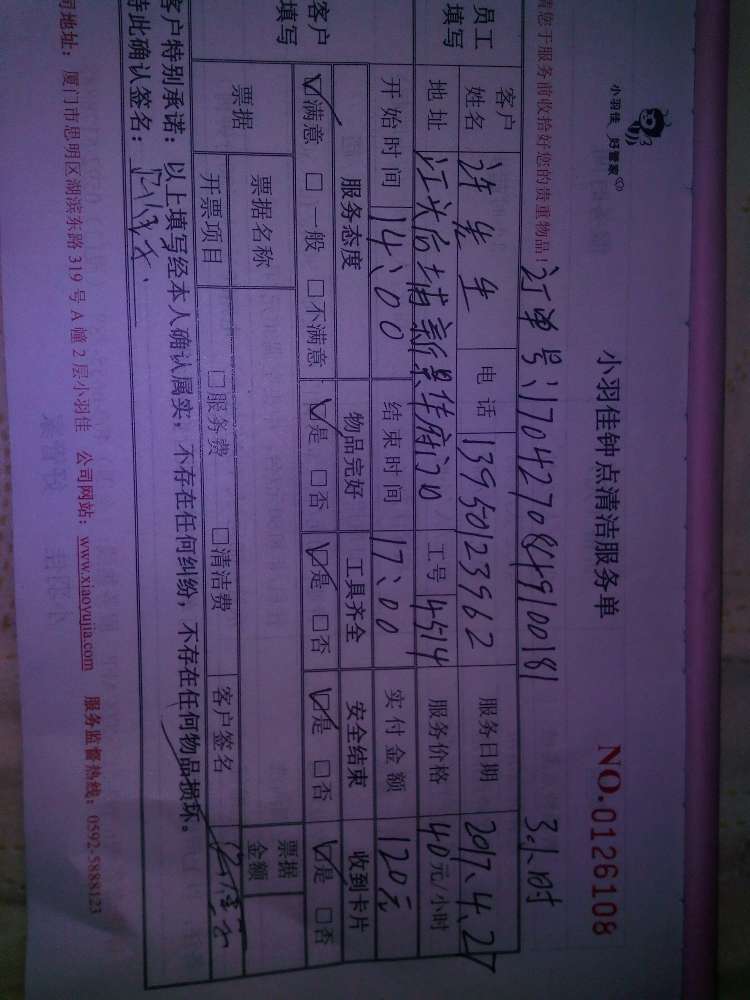 小羽佳 好管家
小羽佳钟点清洁服务单
NO.0126108
请您于服务前收拾好您的贵重物品！ 订单号：1704270849100181 3小时
员工填写
客户姓名 许先生 电话 13950123962 服务日期 2017.4.27
地址 江头后埔新景华府门口 工号 4514 服务价格 40元/小时
开始时间 14：00 结束时间 17：00 实付金额 120元
客户填写
服务态度 物品完好 工具齐全 安全结束 收到卡片
☑满意 □一般 □不满意 ☑是 □否 ☑是 □否 ☑是 □否 ☑是 □否
票据 票据名称 票据金额
开票项目 □服务费 □清洁费 客户签名
客户特别承诺：以上填写经本人确认属实，不存在任何纠纷，不存在任何物品损坏。
特此确认签名：
司地址：厦门市思明区湖滨东路 319 号 A 幢 2 层小羽佳 公司网站：www.xiaoyujia.com 服务监督热线：0592-5888123